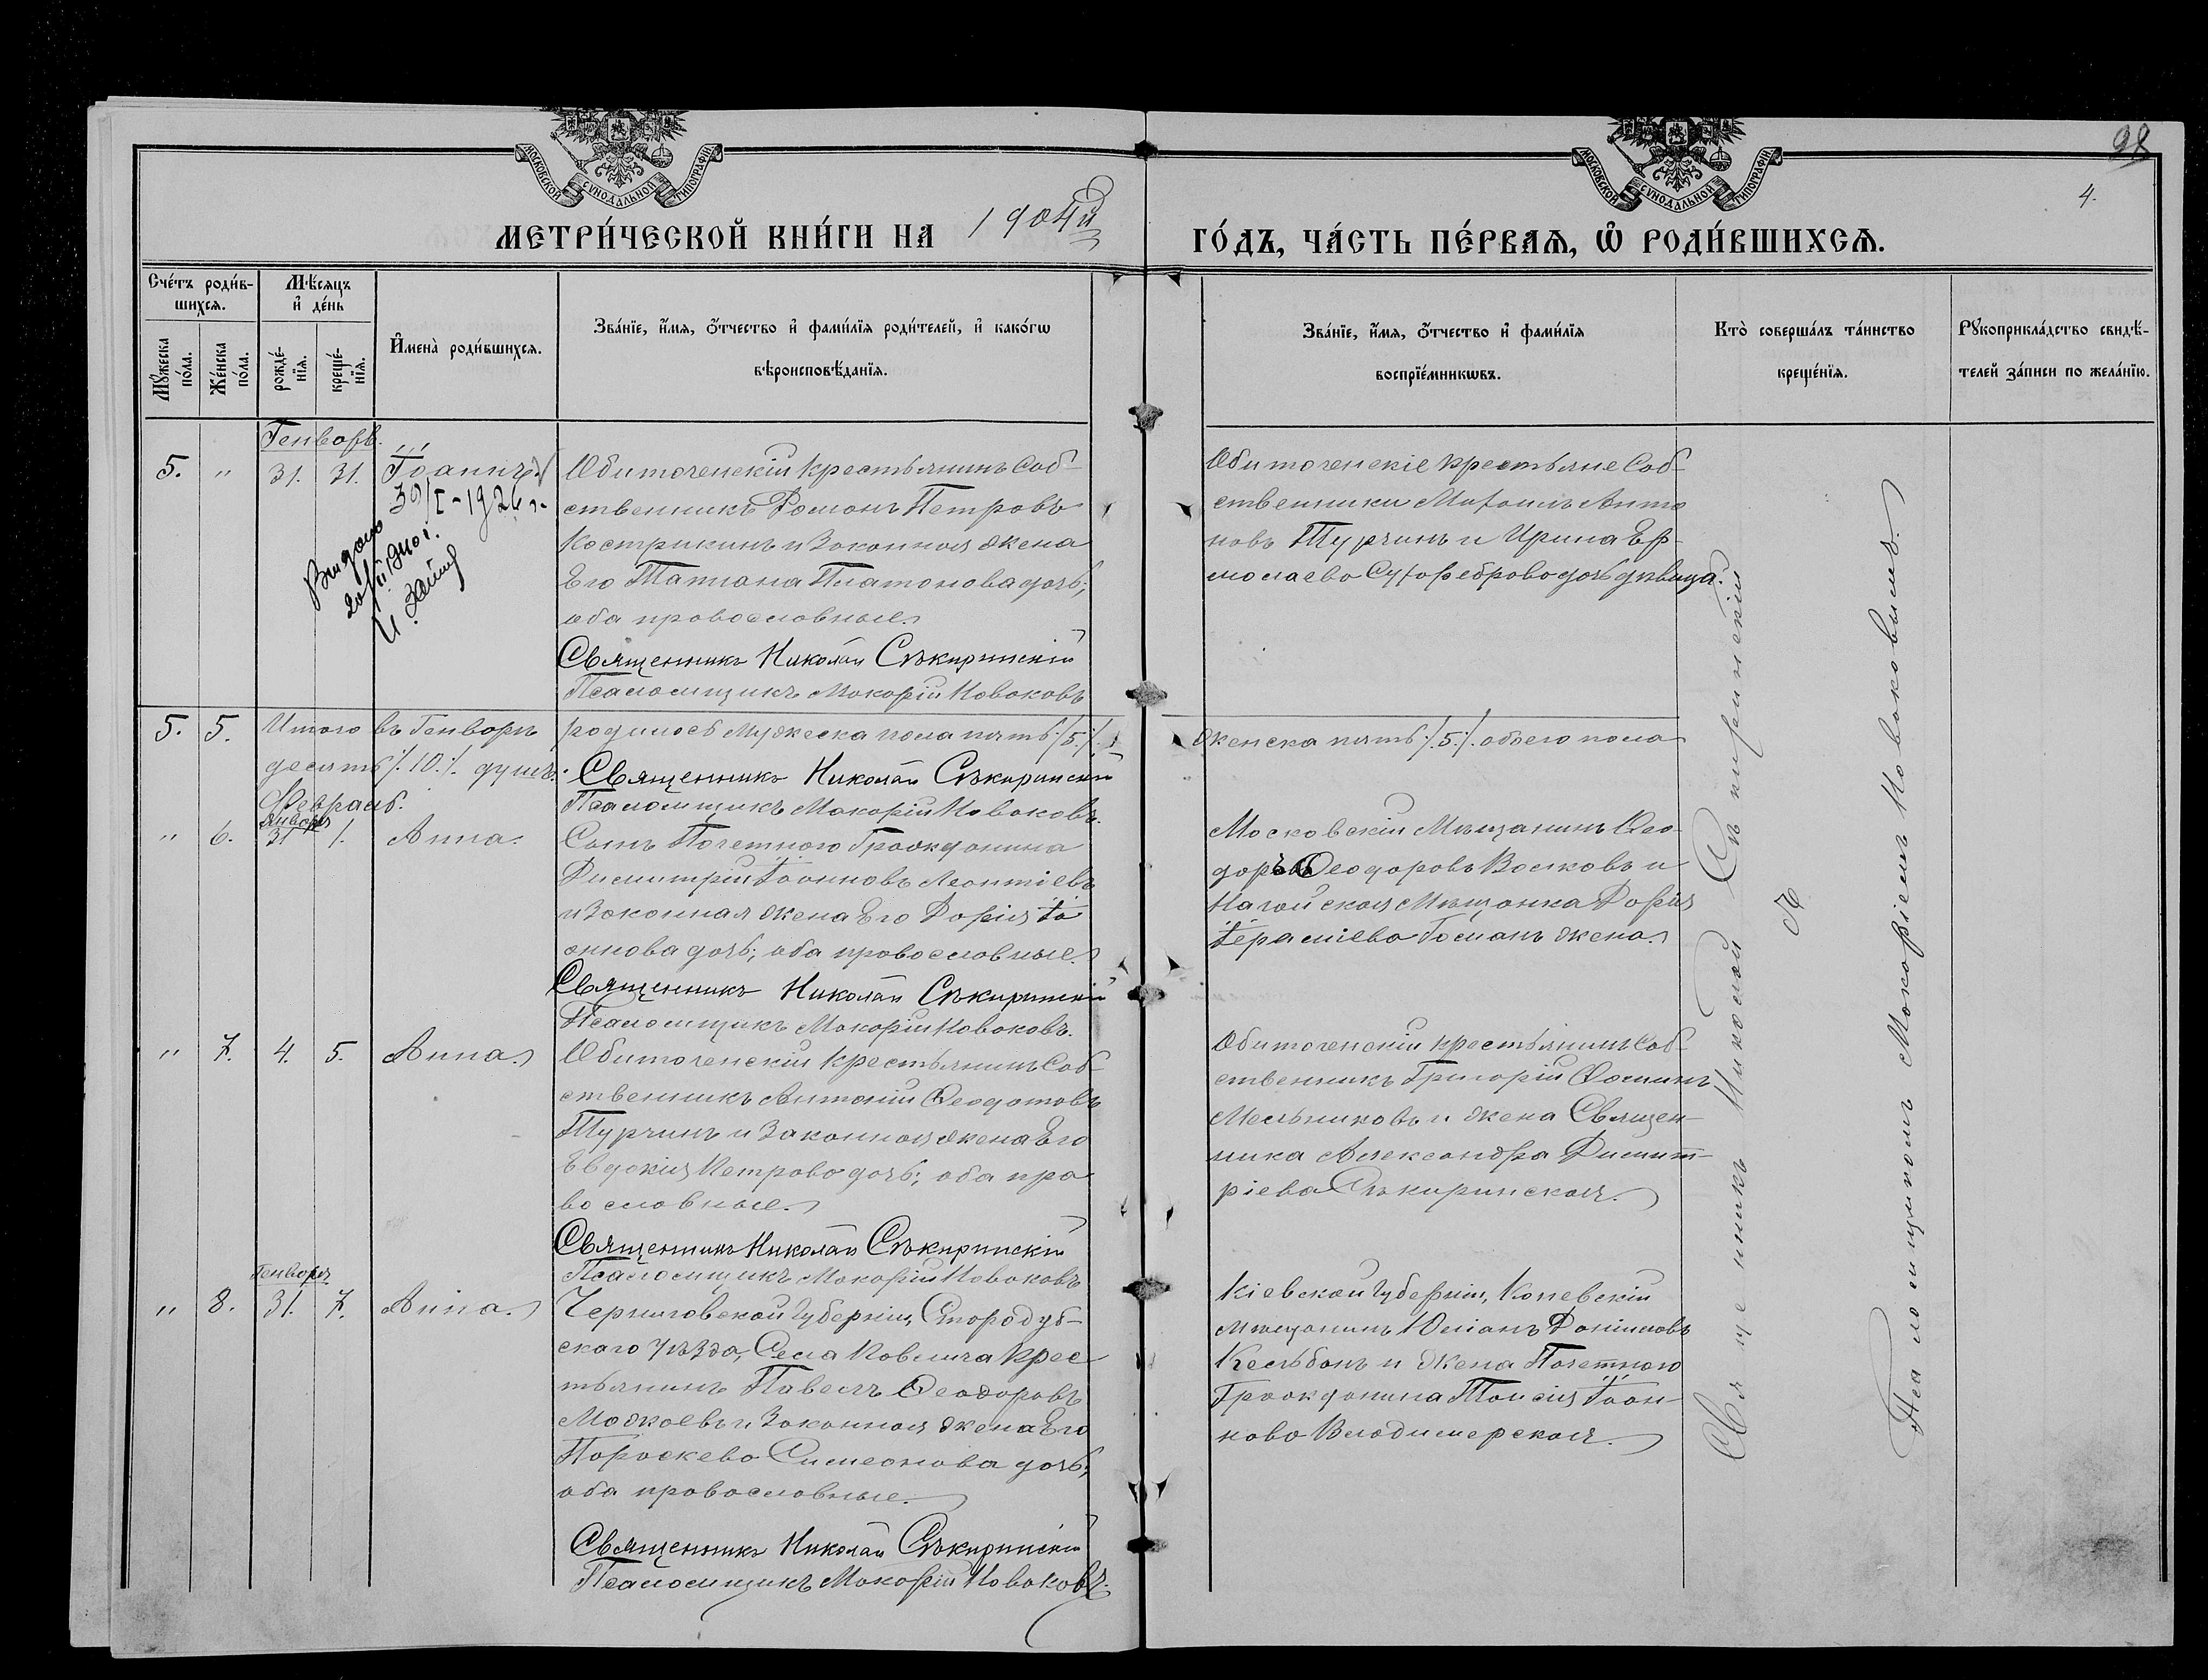 98
4.
МОСКОВСКОЙ СѴНОДАЛЬНОЙ ТИПОГРАФІИ
МОСКОВСКОЙ СѴНОДАЛЬНОЙ ТИПОГРАФІИ
МЕТРИ́ЧЕСКОЙ КНИ́ГИ НА 1904й
ГО́ДЪ, ЧА́СТЬ ПЕ́РВАѦ, Ѽ РОДИ́ВШИХСѦ.
Сче́тъ роди́в-
шихсѧ.
Мѣ́сѧцъ
и҆ де́нь
Мꙋ́жеска
по́ла.
Же́нска
по́ла.
рожде́-
нїѧ.
креще́-
нїѧ.
И҆мена̀ роди́вшихсѧ.
Зва́нїе, и҆́мѧ, ѻ҆́тчество и҆ фами́лїѧ роди́телей, и҆ како́гѡ
вѣроисповѣ́данїѧ.
Зва́нїе, и҆́мѧ, ѻ҆́тчество и҆ фами́лїѧ
воспрїе́мникѡвъ.
Кто̀ соверша́лъ та́инство
креще́нїѧ.
Рꙋкоприкла́дство свидѣ́-
телей за́писи по жела́нїю.
Генварь.
5. " 31. 31. Іоаннъ
30/I-1926 г.
Выдано
20/II. 1940 г.
Обиточенскій крестьянинъ Соб-
ственникъ Романъ Петровъ
Кострикинъ и Законная жена
Его Татiана Платонова дочь;
оба православные.
Священникъ Николай Сѣкиринскій
Псаломщикъ Макарій Новаковъ
Обиточенскіе крестьяне Соб-
ственники Михаилъ Анто
новъ Турчинъ и Ирина Ер-
молаева Сухореброва дочь дѣвица.
5. 5. Итого въ Генварѣ родилось мужеска пола пять /.5./.
женска пять /.5./. обоего пола
десять /.10./. душъ.
Священникъ Николай Сѣкиринскій
Псаломщикъ Макарій Новаковъ.
Февраль.
Январь
" 6. 31 1. Анна.
Сынъ Почетнаго Гражданина
Димитрій Іоанновъ Леонтіевъ
и Законная жена Его Дарія Іо
аннова дочь; оба православные.
Священникъ Николай Сѣкиринскій
Псаломщикъ Макарій Новаковъ.
Московскій Мѣщанинъ Ѳео-
доръ Ѳеодоровъ Волковъ и
Ногайская Мѣщанка Дарія
жена.
" 7. 4. 5. Анна.
Обиточенскій крестьянинъ Соб-
ственникъ Антоній Ѳеодотовъ
Турчинъ и Законная жена Его
Евдокія Петрова дочь; оба пра
вославные.
Священникъ Николай Сѣкиринскій
Псаломщикъ Макарій Новаковъ
Обиточенскій крестьянинъ Соб-
ственникъ Григорій Ѳоминъ
Мельниковъ и жена Священ-
ника Александра Димит-
ріева Сѣкиринская.
Генваря
" 8. 31. 7. Анна.
Черниговской Губерніи, Стародуб-
скаго Уѣзда, Села Крес
тьянинъ Павелъ Ѳеодоровъ
и Законная жена Его
Параскева Симеонова дочь;
оба православные.
Священникъ Николай Сѣкиринскій
Псаломщикъ Макарій Новаковъ.
Кіевской Губерніи, Каневскій
мѣщанинъ Юліанъ Даніиловъ
и Жена Почетнаго
Гражданина Таисія Іоан-
нова Владимерская.
Священникъ Николай Сѣкиринскій
Псаломщикомъ Макаріемъ Новаковымъ.